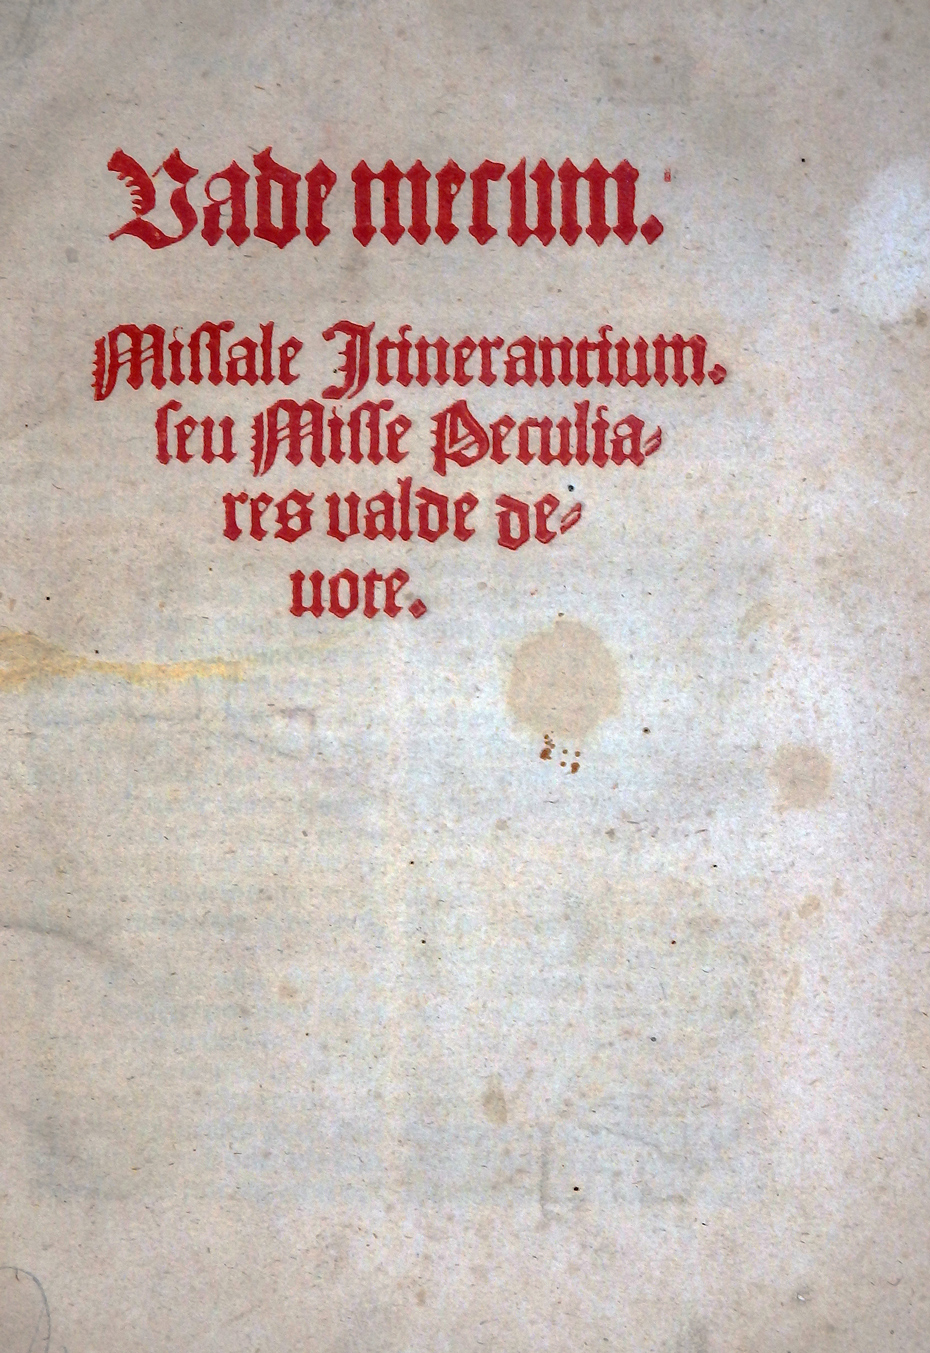 Vade mecum.
Missale Itinerantium.
seu Misse Peculia⸗
res valde de⸗
uote.